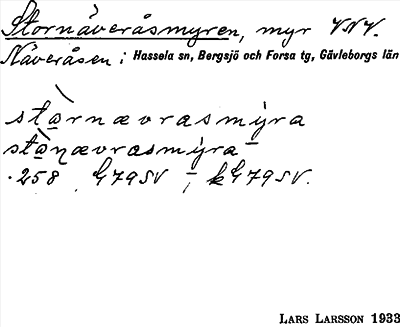 Stornäveråsmyren, myr VNV.
Näveråsen; Hassela sn, Bergsjö och Forsa tg, Gävleborgs län
stàrnævrasmýra
stànævrasmýra
·258 G79SV ; kG79SV.
LARS LARSSON 1933